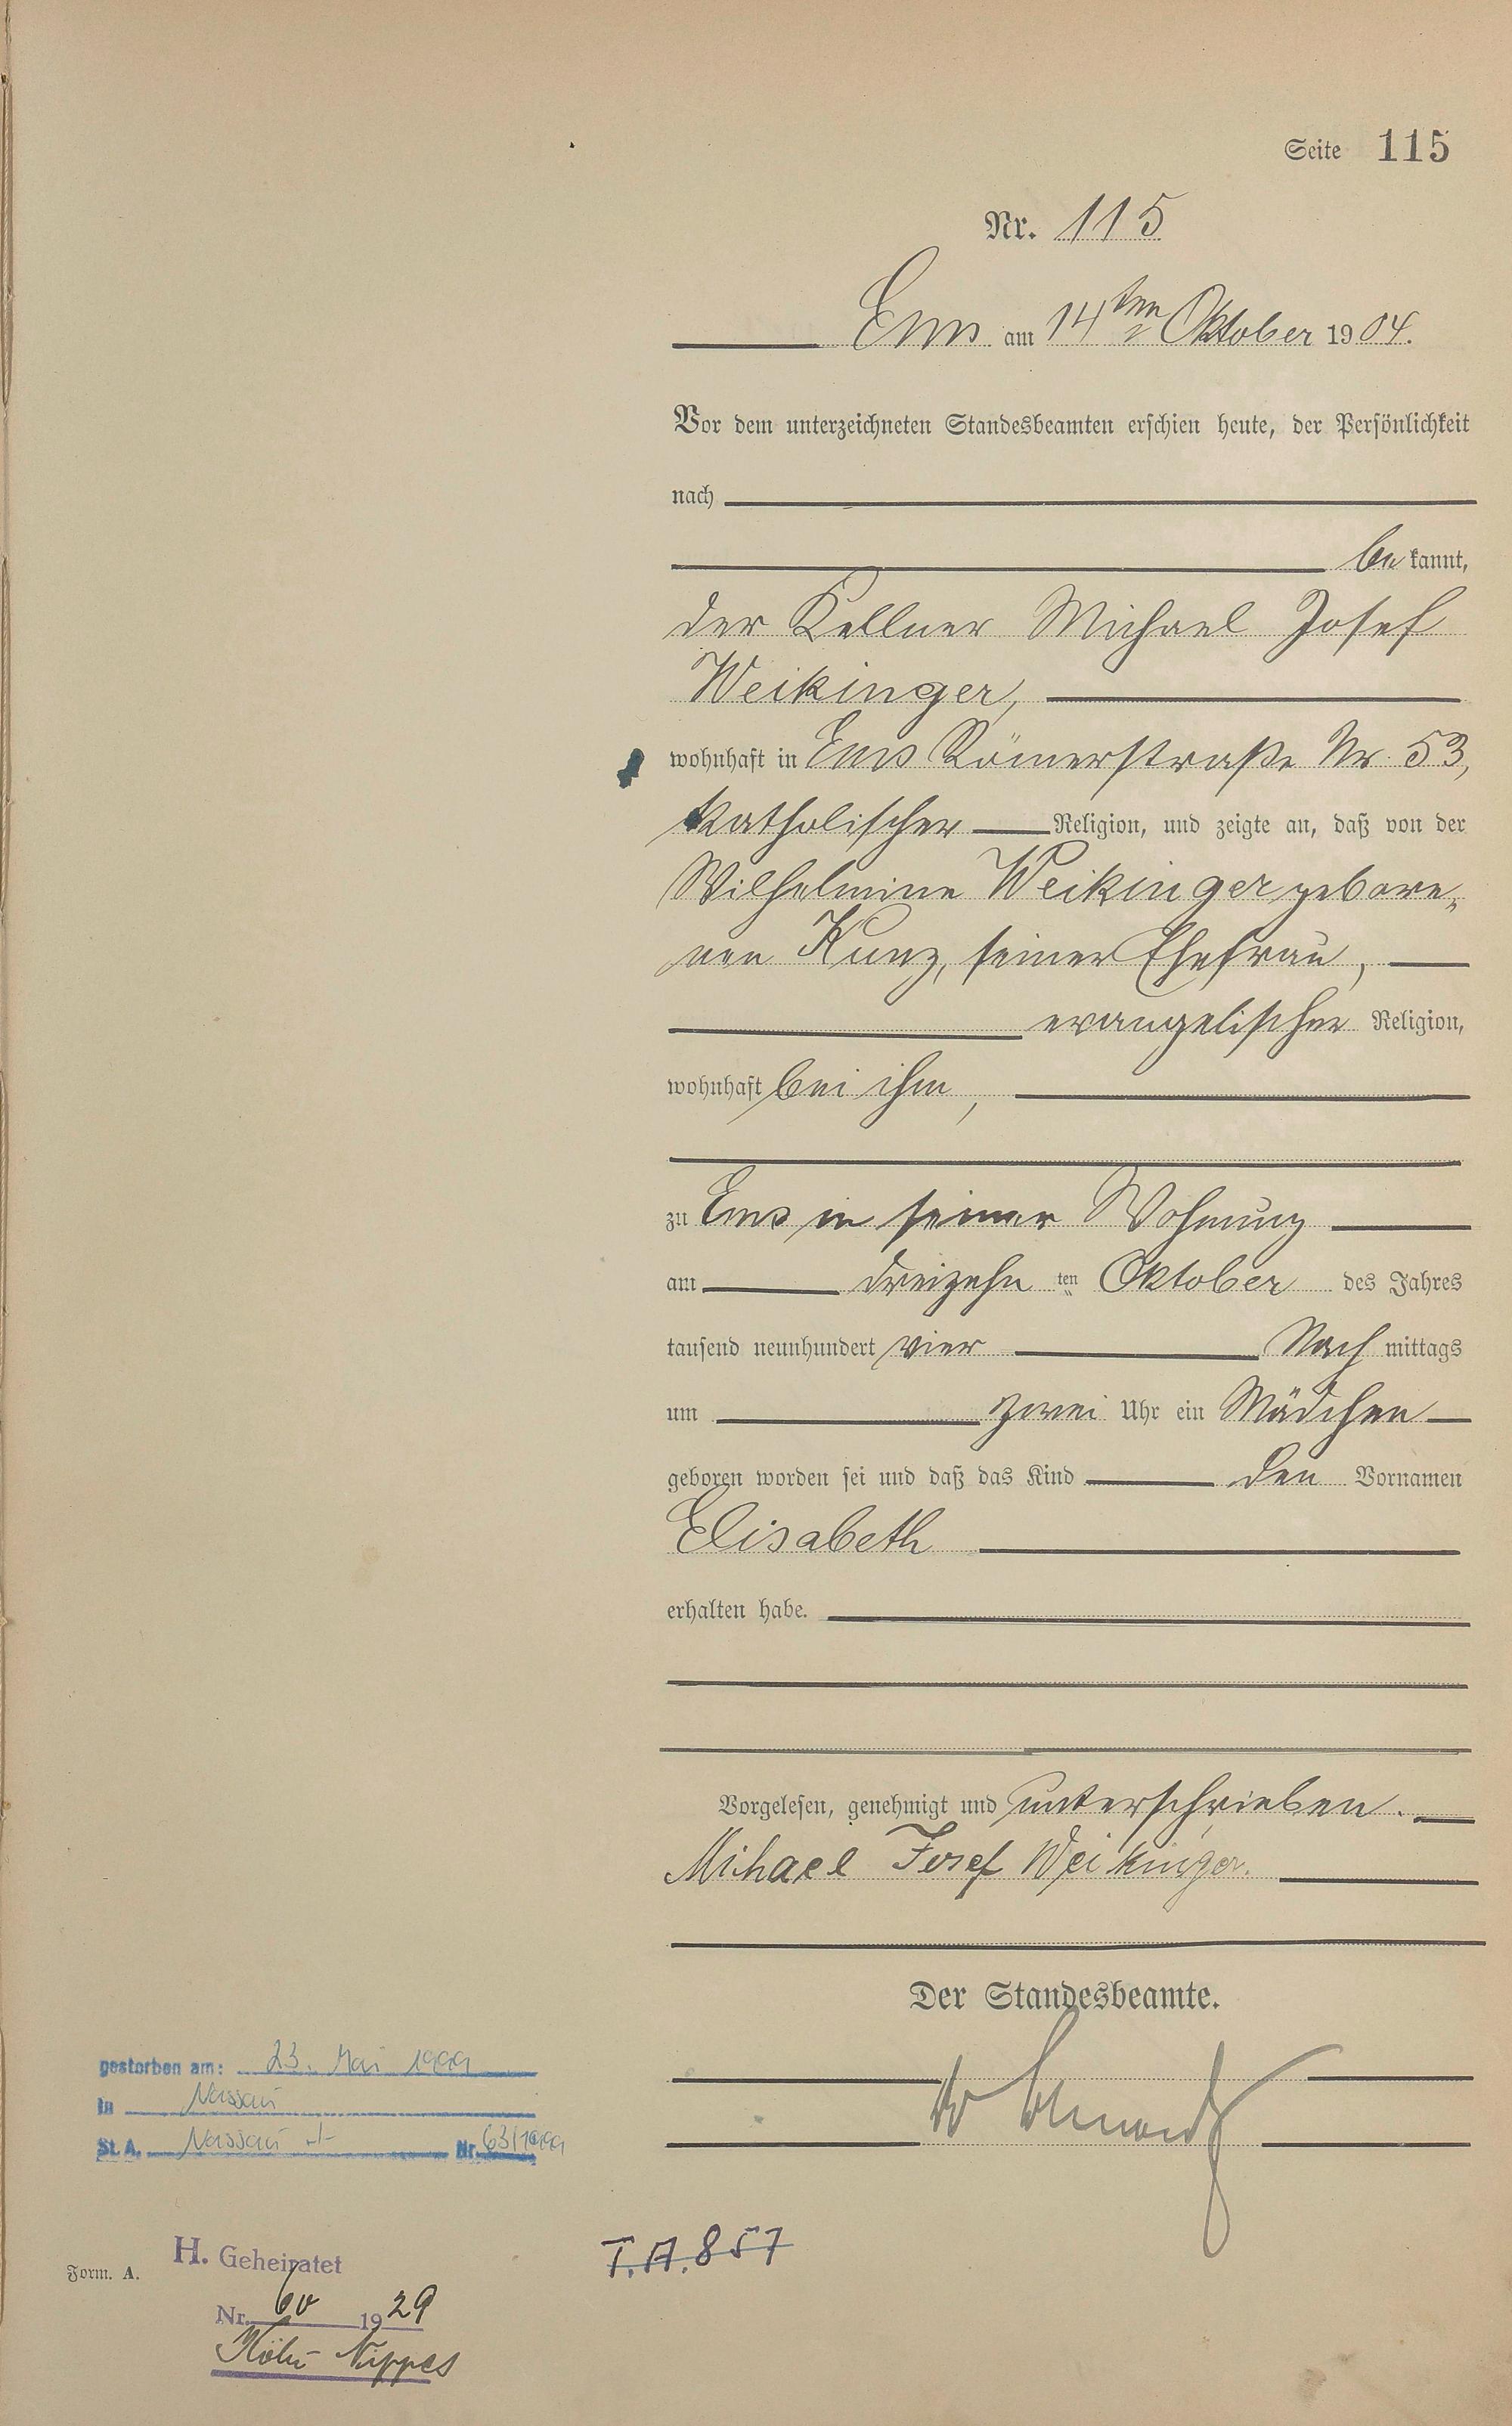 Seite 115
Nr. 115
Ems am 14ten Oktober 1904.
Vor dem unterzeichneten Standesbeamten erschien heute, der Persönlichkeit
nach
be kannt,
der Kellner Michael Josef
Weikinger,
wohnhaft in Ems Römerstraße Nr. 53,
katholischer Religion, und zeigte an, daß von der
Wilhelmine Weikinger gebore-
nen Kunz, seiner Ehefrau,
evangelischer Religion,
wohnhaft bei ihm,
zu Ems in seiner Wohnung
am dreizehn ten Oktober des Jahres
tausend neunhundert vier Nach mittags
um zwei Uhr ein Mädchen
geboren worden sei und daß das Kind den Vornamen
Elisabeth
erhalten habe.
Vorgelesen, genehmigt und unterschrieben.
Mihael Josef Weikinger.
Der Standesbeamte.
gestorben am: 23. Mai 1999
in Nassau
St. A. Nassau Nr. 63/1999
T.A. 857
H. Geheiratet
Form. A.
Nr. 60 1929
Köln Nippes